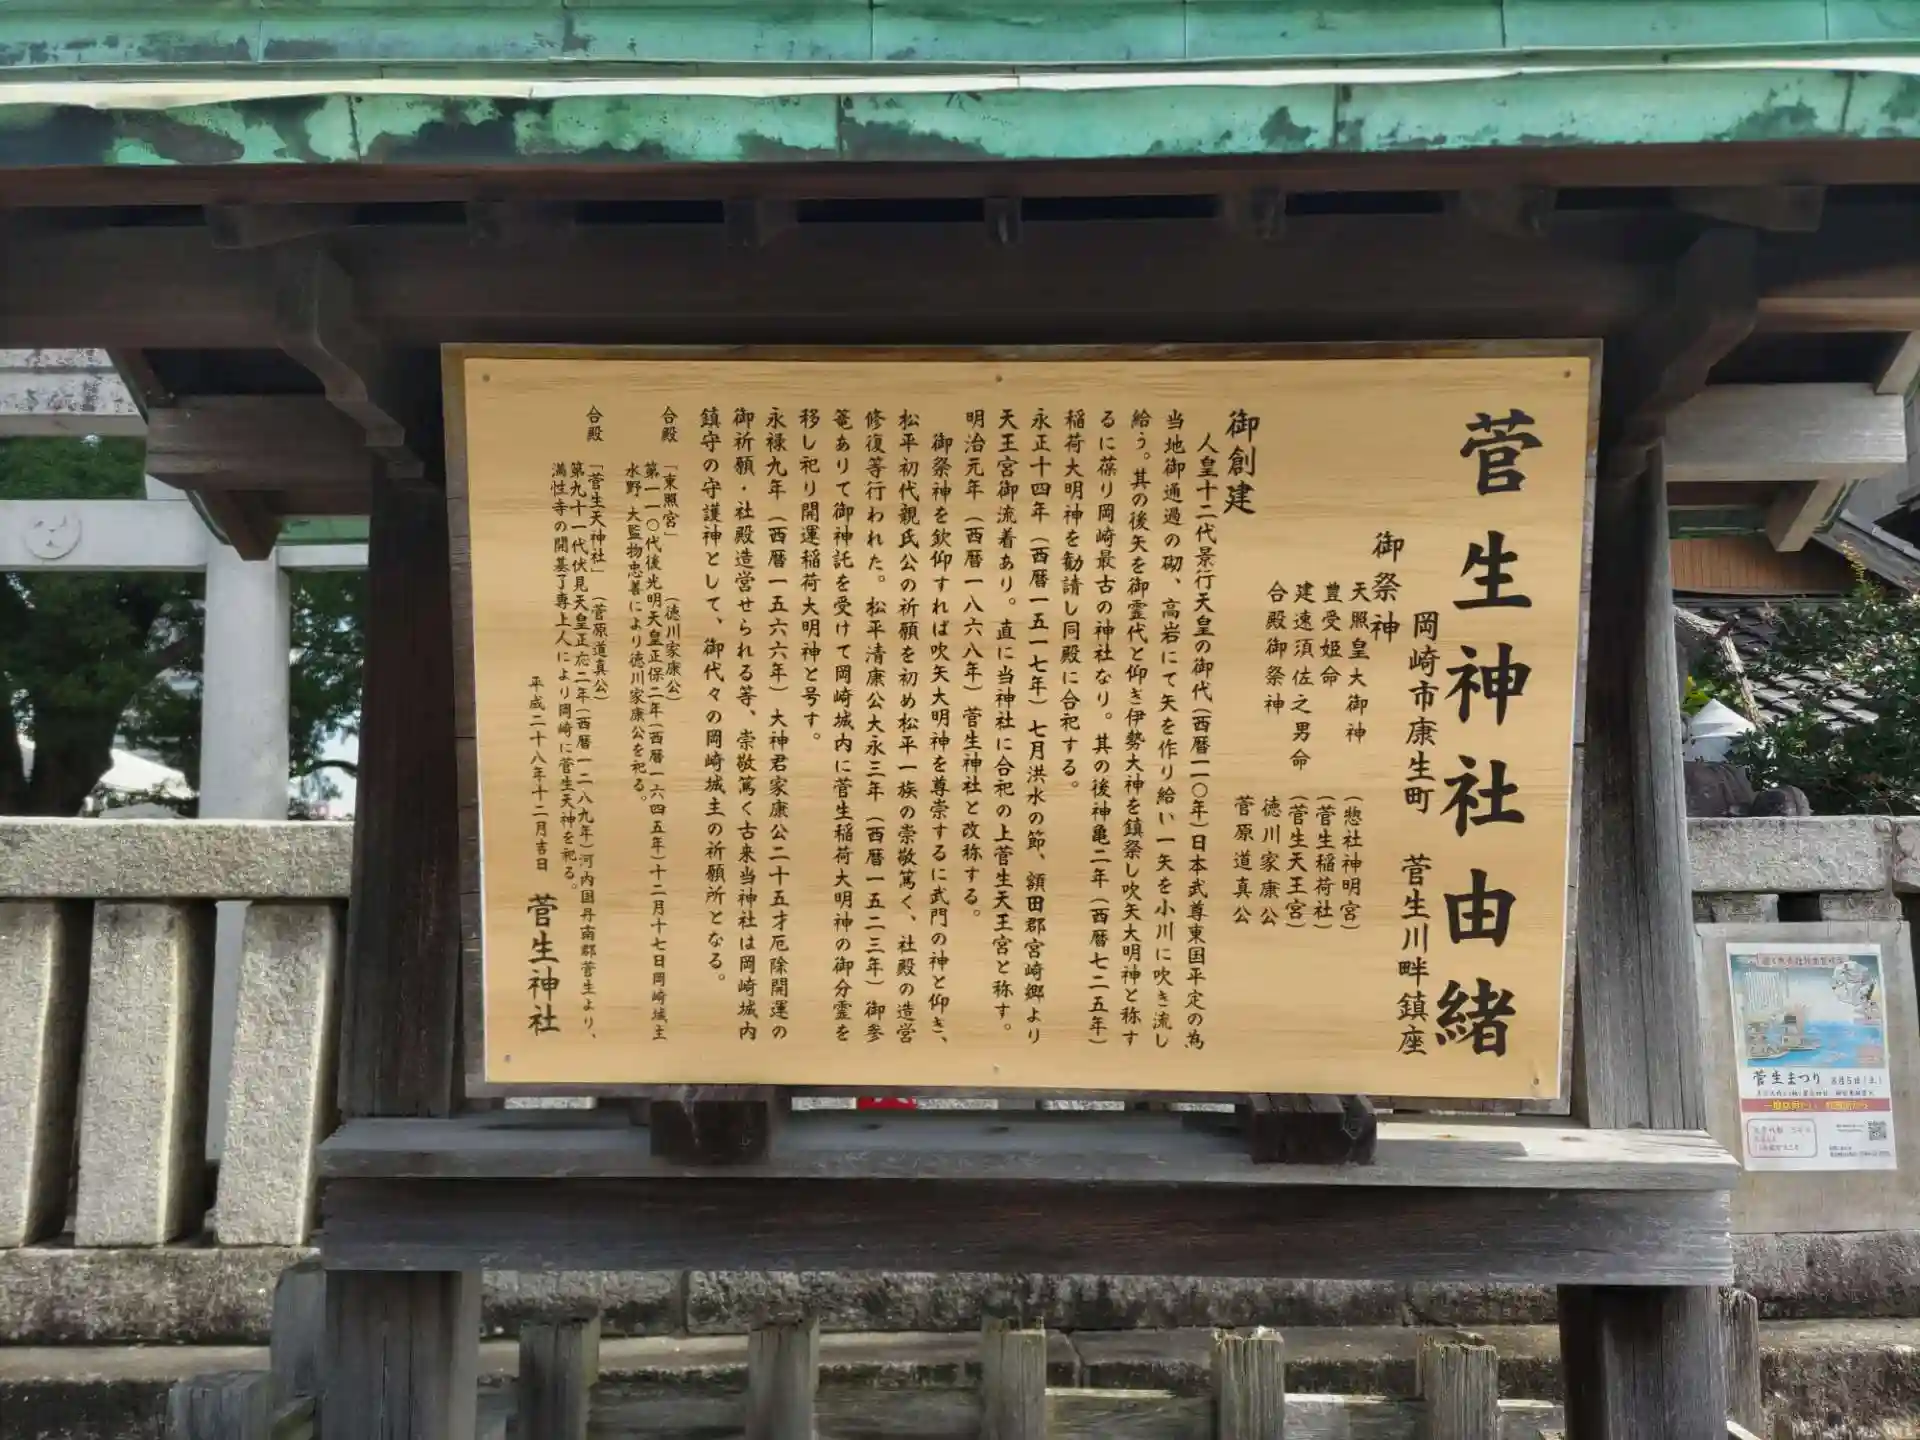 菅生神社由緒
岡崎市康生町 菅生川畔鎮座
御祭神
天照皇大御神 (惣社神明宮)
豊受姫命 (菅生稲荷社)
建速須佐之男命 (菅生天王宮)
合殿御祭神 徳川家康公
菅原道真公
御創建
人皇十二代景行天皇の御代(西暦一一〇年)日本武尊東国平定の為
当地御通過の砌、高岩にて矢を作り給い一矢を小川に吹き流し
給う。其の後矢を御霊代と仰ぎ伊勢大神を鎮祭し吹矢大明神と称す
るに葆り岡崎最古の神社なり。其の後神亀二年(西暦七二五年)
稲荷大明神を勧請し同殿に合祀する。
永正十四年(西暦一五一七年)七月洪水の節、額田郡宮崎郷より
天王宮御流着あり。直に当神社に合祀の上菅生天王宮と称す。
明治元年(西暦一八六八年)菅生神社と改称する。
御祭神を欽仰すれば吹矢大明神を尊崇するに武門の神と仰ぎ、
松平初代親氏公の祈願を初め松平一族の崇敬篤く、社殿の造営
修復等行われた。松平清康公大永三年(西暦一五二三年)御参
篭ありて御神託を受けて岡崎城内に菅生稲荷大明神の御分霊を
移し祀り開運稲荷大明神と号す。
永禄九年(西暦一五六六年)大神君家康公二十五才厄除開運の
御祈願・社殿造営せられる等、崇敬篤く古来当神社は岡崎城内
鎮守の守護神として、御代々の岡崎城主の祈願所となる。
合殿 「東照宮」 (徳川家康公)
第一一〇代後光明天皇正保二年(西暦一六四五年)十二月十七日岡崎城主
水野大監物忠善により徳川家康公を祀る。
合殿 「菅生天神社」 (菅原道真公)
第九十一代伏見天皇正応二年(西暦一二八九年)河内国丹南郡菅生より、
満性寺の開基了専上人により岡崎に菅生天神を祀る。
平成二十八年十二月吉日 菅生神社
菅生まつり 8月5日(土)